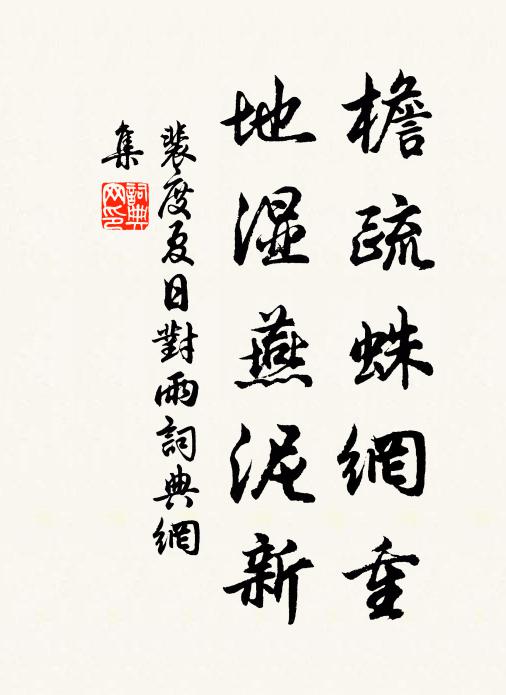 檐疏蛛網重
地湿燕泥新
裴度夏日對雨詞典網
集
詞典
网印